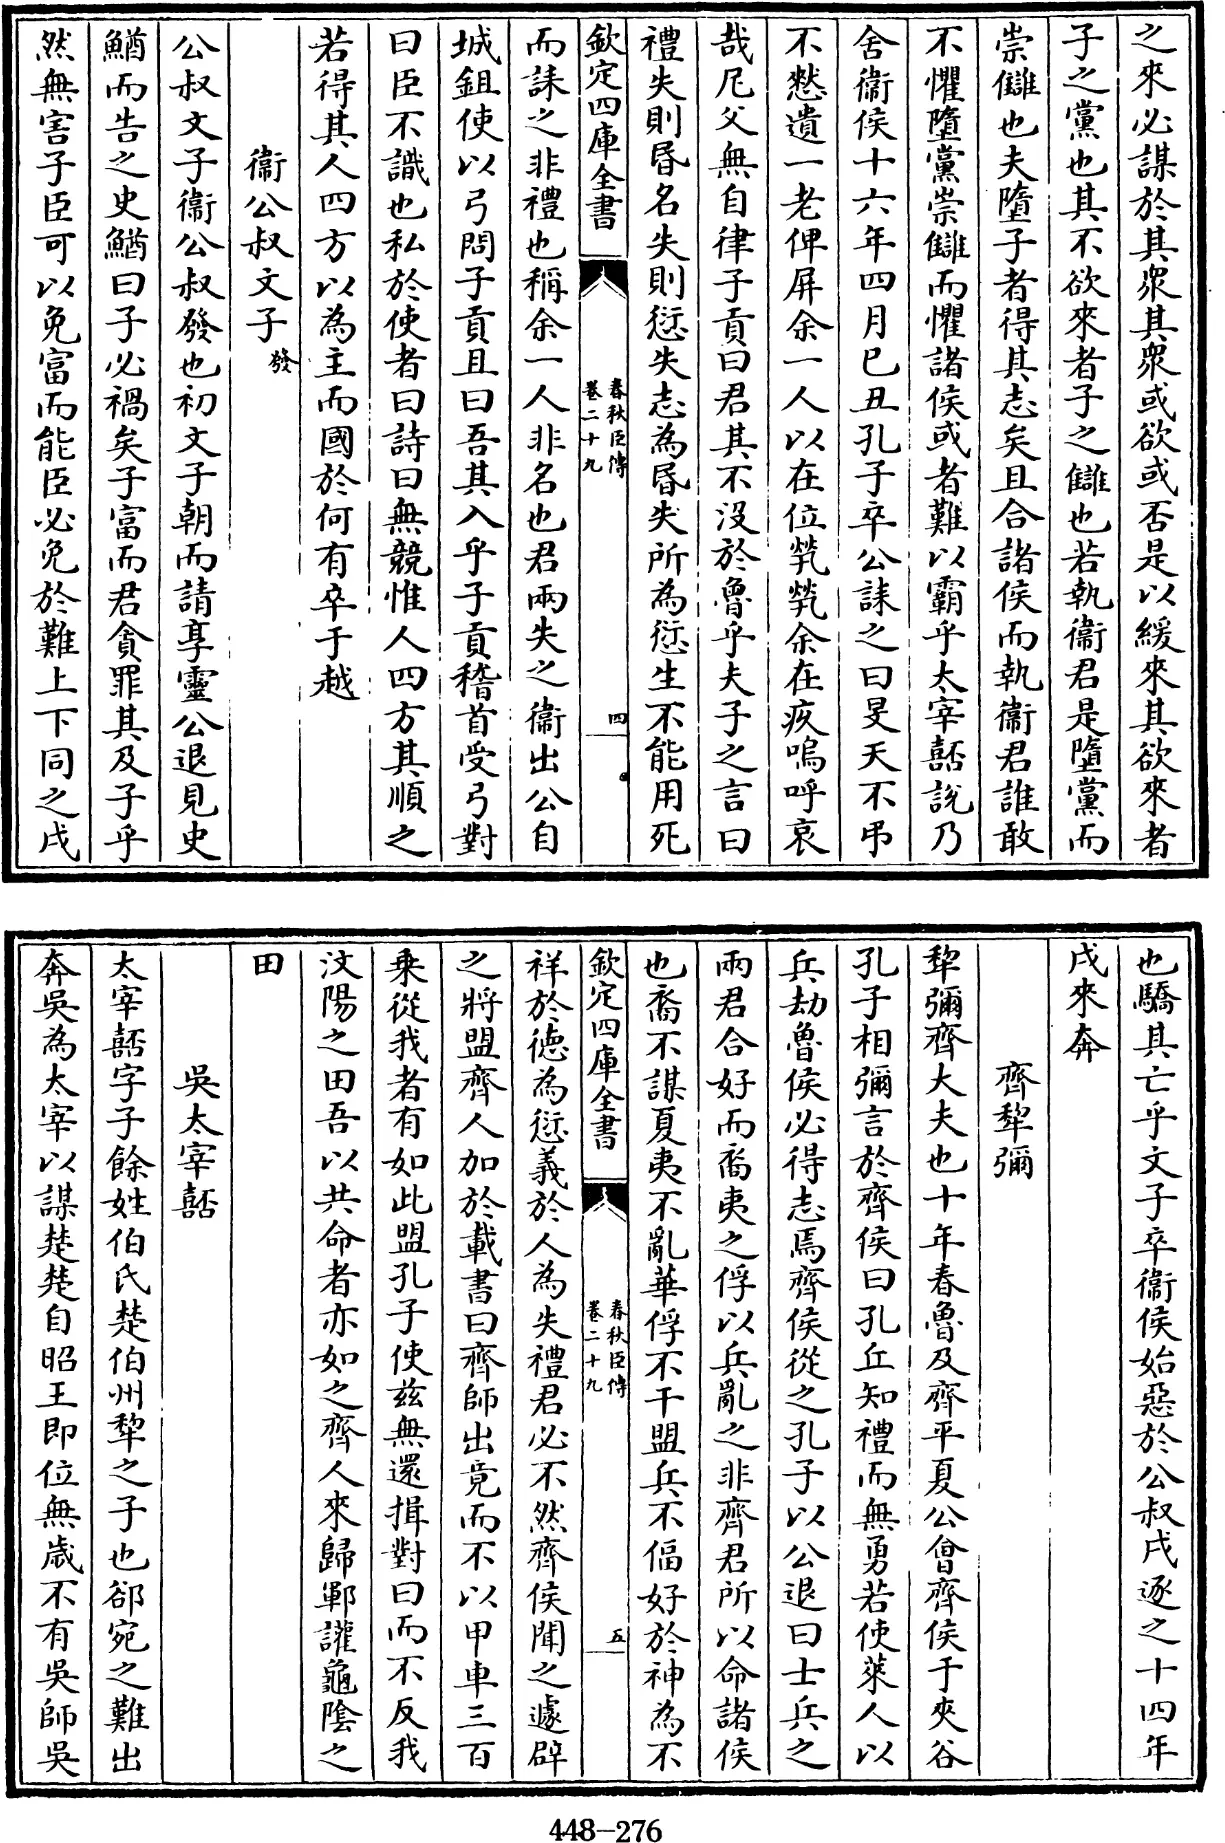 之來必謀於其衆其衆或欲或否是以緩來其欲來者
子之黨也其不欲來者子之讎也若執衞君是墮黨而
崇讎也夫墮子者得其志矣且合諸侯而執衞君誰敢
不懼墮黨崇讎而懼諸侯或者難以霸乎太宰嚭說乃
舍衞侯十六年四月巳丑孔子卒公誄之曰旻天不弔
不憗遺一老俾屏余一人以在位煢煢余在疚嗚呼哀
哉尼父無自律子貢曰君其不沒於魯乎夫子之言曰
禮失則昏名失則愆失志為昏失所為愆生不能用死
欽定四庫全書
春秋臣傳
卷二十九
四
而誄之非禮也稱余一人非名也君兩失之衞出公自
城鉏使以弓問子貢且曰吾其入乎子貢稽首受弓對
曰臣不識也私於使者曰詩曰無競惟人四方其順之
若得其人四方以為主而國於何有卒于越
衞公叔文子發
公叔文子衞公叔發也初文子朝而請享靈公退見史
鰌而告之史鰌曰子必禍矣子富而君貪罪其及子乎
然無害子臣可以免富而能臣必免於難上下同之戌
也驕其亡乎文子卒衞侯始惡於公叔戌逐之十四年
戌來奔
齊犂彌
犂彌齊大夫也十年春魯及齊平夏公會齊侯于夾谷
孔子相彌言於齊侯曰孔丘知禮而無勇若使萊人以
兵劫魯侯必得志焉齊侯從之孔子以公退曰士兵之
兩君合好而裔夷之俘以兵亂之非齊君所以命諸侯
也裔不謀夏夷不亂華俘不干盟兵不偪好於神為不
欽定四庫全書
春秋臣傳
卷二十九
五
祥於德為愆義於人為失禮君必不然齊侯聞之遽辟
之將盟齊人加於載書曰齊師出竟而不以甲車三百
乗從我者有如此盟孔子使兹無還揖對曰而不反我
汶陽之田吾以共命者亦如之齊人來歸鄆讙龜陰之
田
吳太宰嚭
太宰嚭字子餘姓伯氏楚伯州犂之子也郤宛之難出
奔吳為太宰以謀楚楚自昭王即位無歲不有吳師吳
448-276